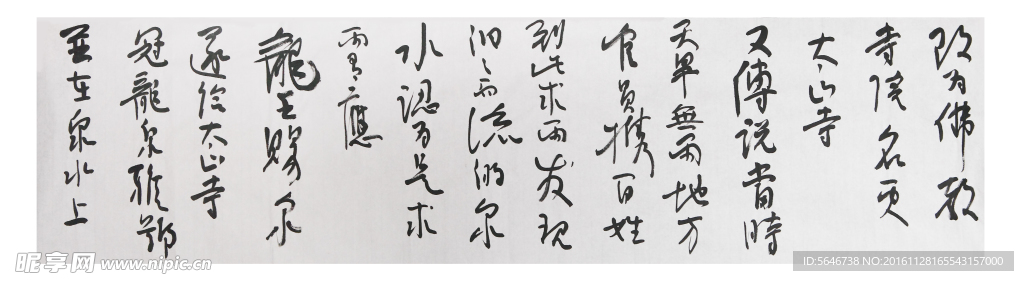 改为佛教
寺院名更
大山寺
又傳説當時
天旱無雨地方
官員携百姓
到此求雨发现
汩々而流的泉
水認为是求
雨有應
龍王賜泉
遂给大山寺
冠龍泉雅號
並在泉水上
昵享网 www.nipic.cn
ID:5646738 NO:20161128165543157000